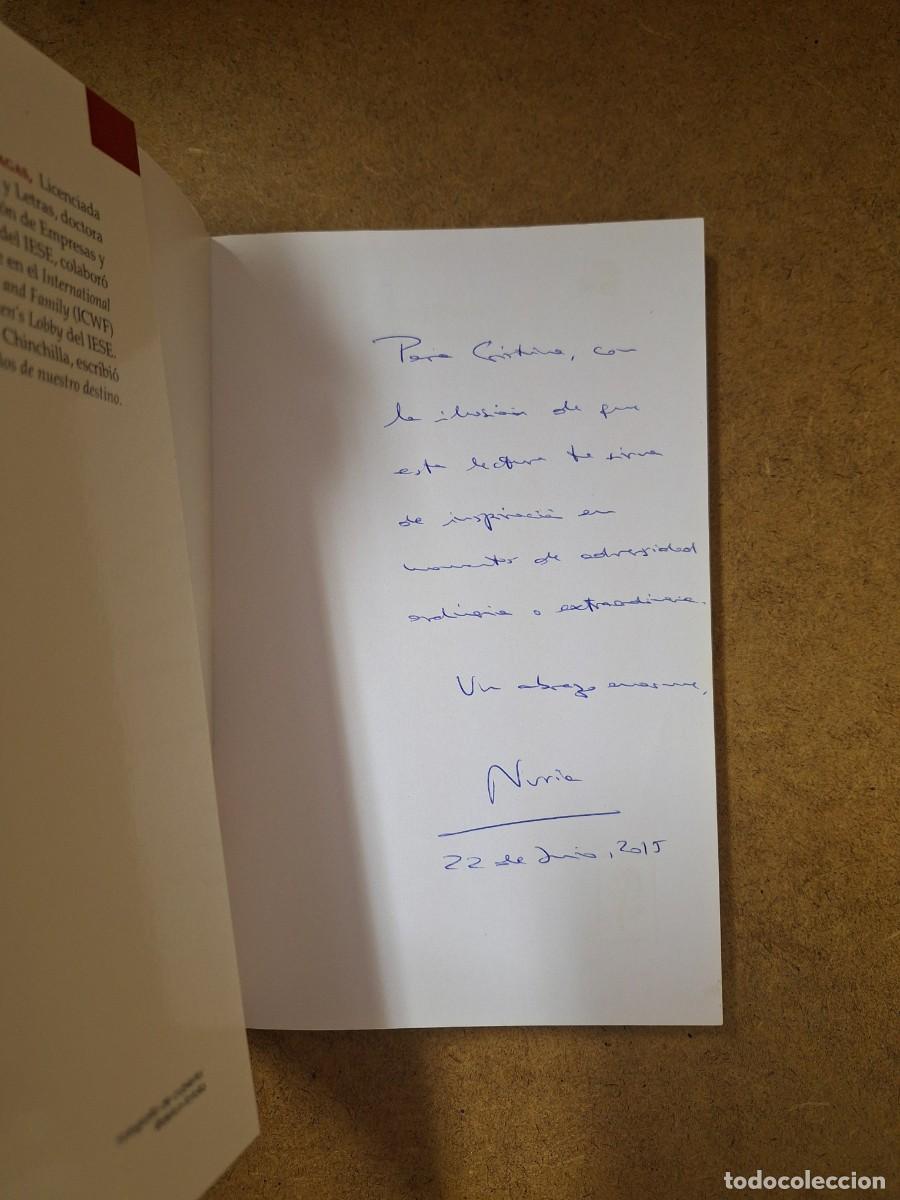 AGAS, Licenciada
y Letras, doctora
ón de Empresas y
del IESE, colaboró
e en el International
and Family (ICWF)
en's Lobby del IESE.
Chinchilla, escribió
ños de nuestro destino.
Para Cristina, con
la ilusión de que
esta lectura te sirva
de inspiración en
momentos de adversidad
ordinaria o extraordinaria.
Un abrazo enorme,
Nuria
22 de Junio, 2015
todocoleccion